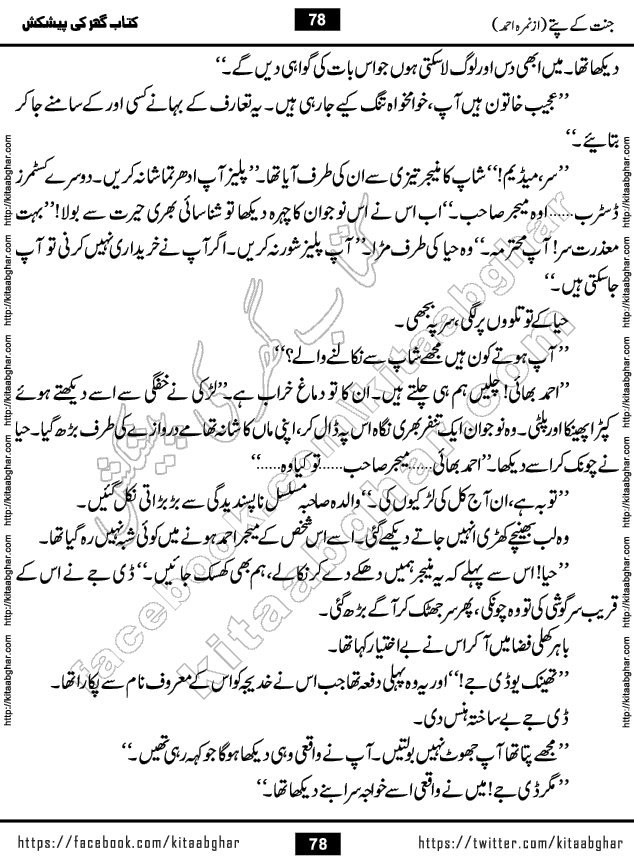 جنت کے پتے (از نمرہ احمد)
78
کتاب گھر کی پیشکش
دیکھا تھا۔ میں ابھی دس اور لوگ لا سکتی ہوں جو اس بات کی گواہی دیں گے۔‘‘
’’عجیب خاتون ہیں آپ، خوامخواہ تنگ کیے جا رہی ہیں۔ یہ تعارف کے بہانے کسی اور کے سامنے جا کر
بتائیے۔‘‘
’’سر، میڈیم!‘‘ شاپ کا منیجر تیزی سے ان کی طرف آیا تھا۔ ’’پلیز آپ ادھر تماشا نہ کریں۔ دوسرے کسٹمرز
ڈسٹرب...... اوہ میجر صاحب۔‘‘ اب اس نے اس نوجوان کا چہرہ دیکھا تو شناسائی بھری حیرت سے بولا! ’’بہت
معذرت سر! آپ محترمہ۔‘‘ وہ حیا کی طرف مڑا۔ ’’آپ پلیز شور نہ کریں۔ اگر آپ نے خریداری نہیں کرنی تو آپ
جا سکتی ہیں۔‘‘
حیا کے تو تلووں پر لگی، سر پہ بجھی۔
’’آپ ہوتے کون ہیں مجھے شاپ سے نکالنے والے؟‘‘
’’احمد بھائی! چلیں ہم ہی چلتے ہیں۔ ان کا تو دماغ خراب ہے۔‘‘ لڑکی نے خفگی سے اسے دیکھتے ہوئے
کپڑا پھینکا اور پلٹی۔ وہ نوجوان ایک تنفر بھری نگاہ اس پہ ڈال کر، اپنی ماں کا شانہ تھامے دروازے کی طرف بڑھ گیا۔ حیا
نے چونک کر اسے دیکھا۔ ’’احمد بھائی...... میجر صاحب...... تو کیا وہ......‘‘
’’توبہ ہے، ان آج کل کی لڑکیوں کی۔‘‘ والدہ صاحبہ مسلسل ناپسندیدگی سے بڑبڑاتی نکل گئیں۔
وہ لب بھینچے کھڑی انہیں جاتے دیکھے گئی۔ اسے اس شخص کے میجر احمد ہونے میں کوئی شبہ نہیں رہ گیا تھا۔
’’حیا! اس سے پہلے کہ یہ منیجر ہمیں دھکے دے کر نکالے، ہم بھی کھسک جائیں۔‘‘ ڈی جے نے اس کے
قریب سرگوشی کی تو وہ چونکی، پھر سر جھٹک کر آگے بڑھ گئی۔
باہر کھلی فضا میں آ کر اس نے بے اختیار کہا تھا۔
’’تھینک یو ڈی جے!‘‘ اور یہ وہ پہلی دفعہ تھا جب اس نے خدیجہ کو اس کے معروف نام سے پکارا تھا۔
ڈی جے بے ساختہ ہنس دی۔
’’مجھے پتا تھا آپ جھوٹ نہیں بولتیں۔ آپ نے واقعی وہی دیکھا ہوگا جو کہہ رہی تھیں۔‘‘
’’مگر ڈی جے! میں نے واقعی اسے خواجہ سرا بنے دیکھا تھا۔‘‘
http://kitaabghar.com http://kitaabghar.com http://kitaabghar.com http://kitaabghar.com http://kitaabghar.com http://kitaabghar.com
http://kitaabghar.com http://kitaabghar.com http://kitaabghar.com http://kitaabghar.com http://kitaabghar.com http://kitaabghar.com
کتاب گھر کی پیشکش
facebook.com/kitaabghar
kitaabghar.com
https://facebook.com/kitaabghar
78
https://twitter.com/kitaabghar